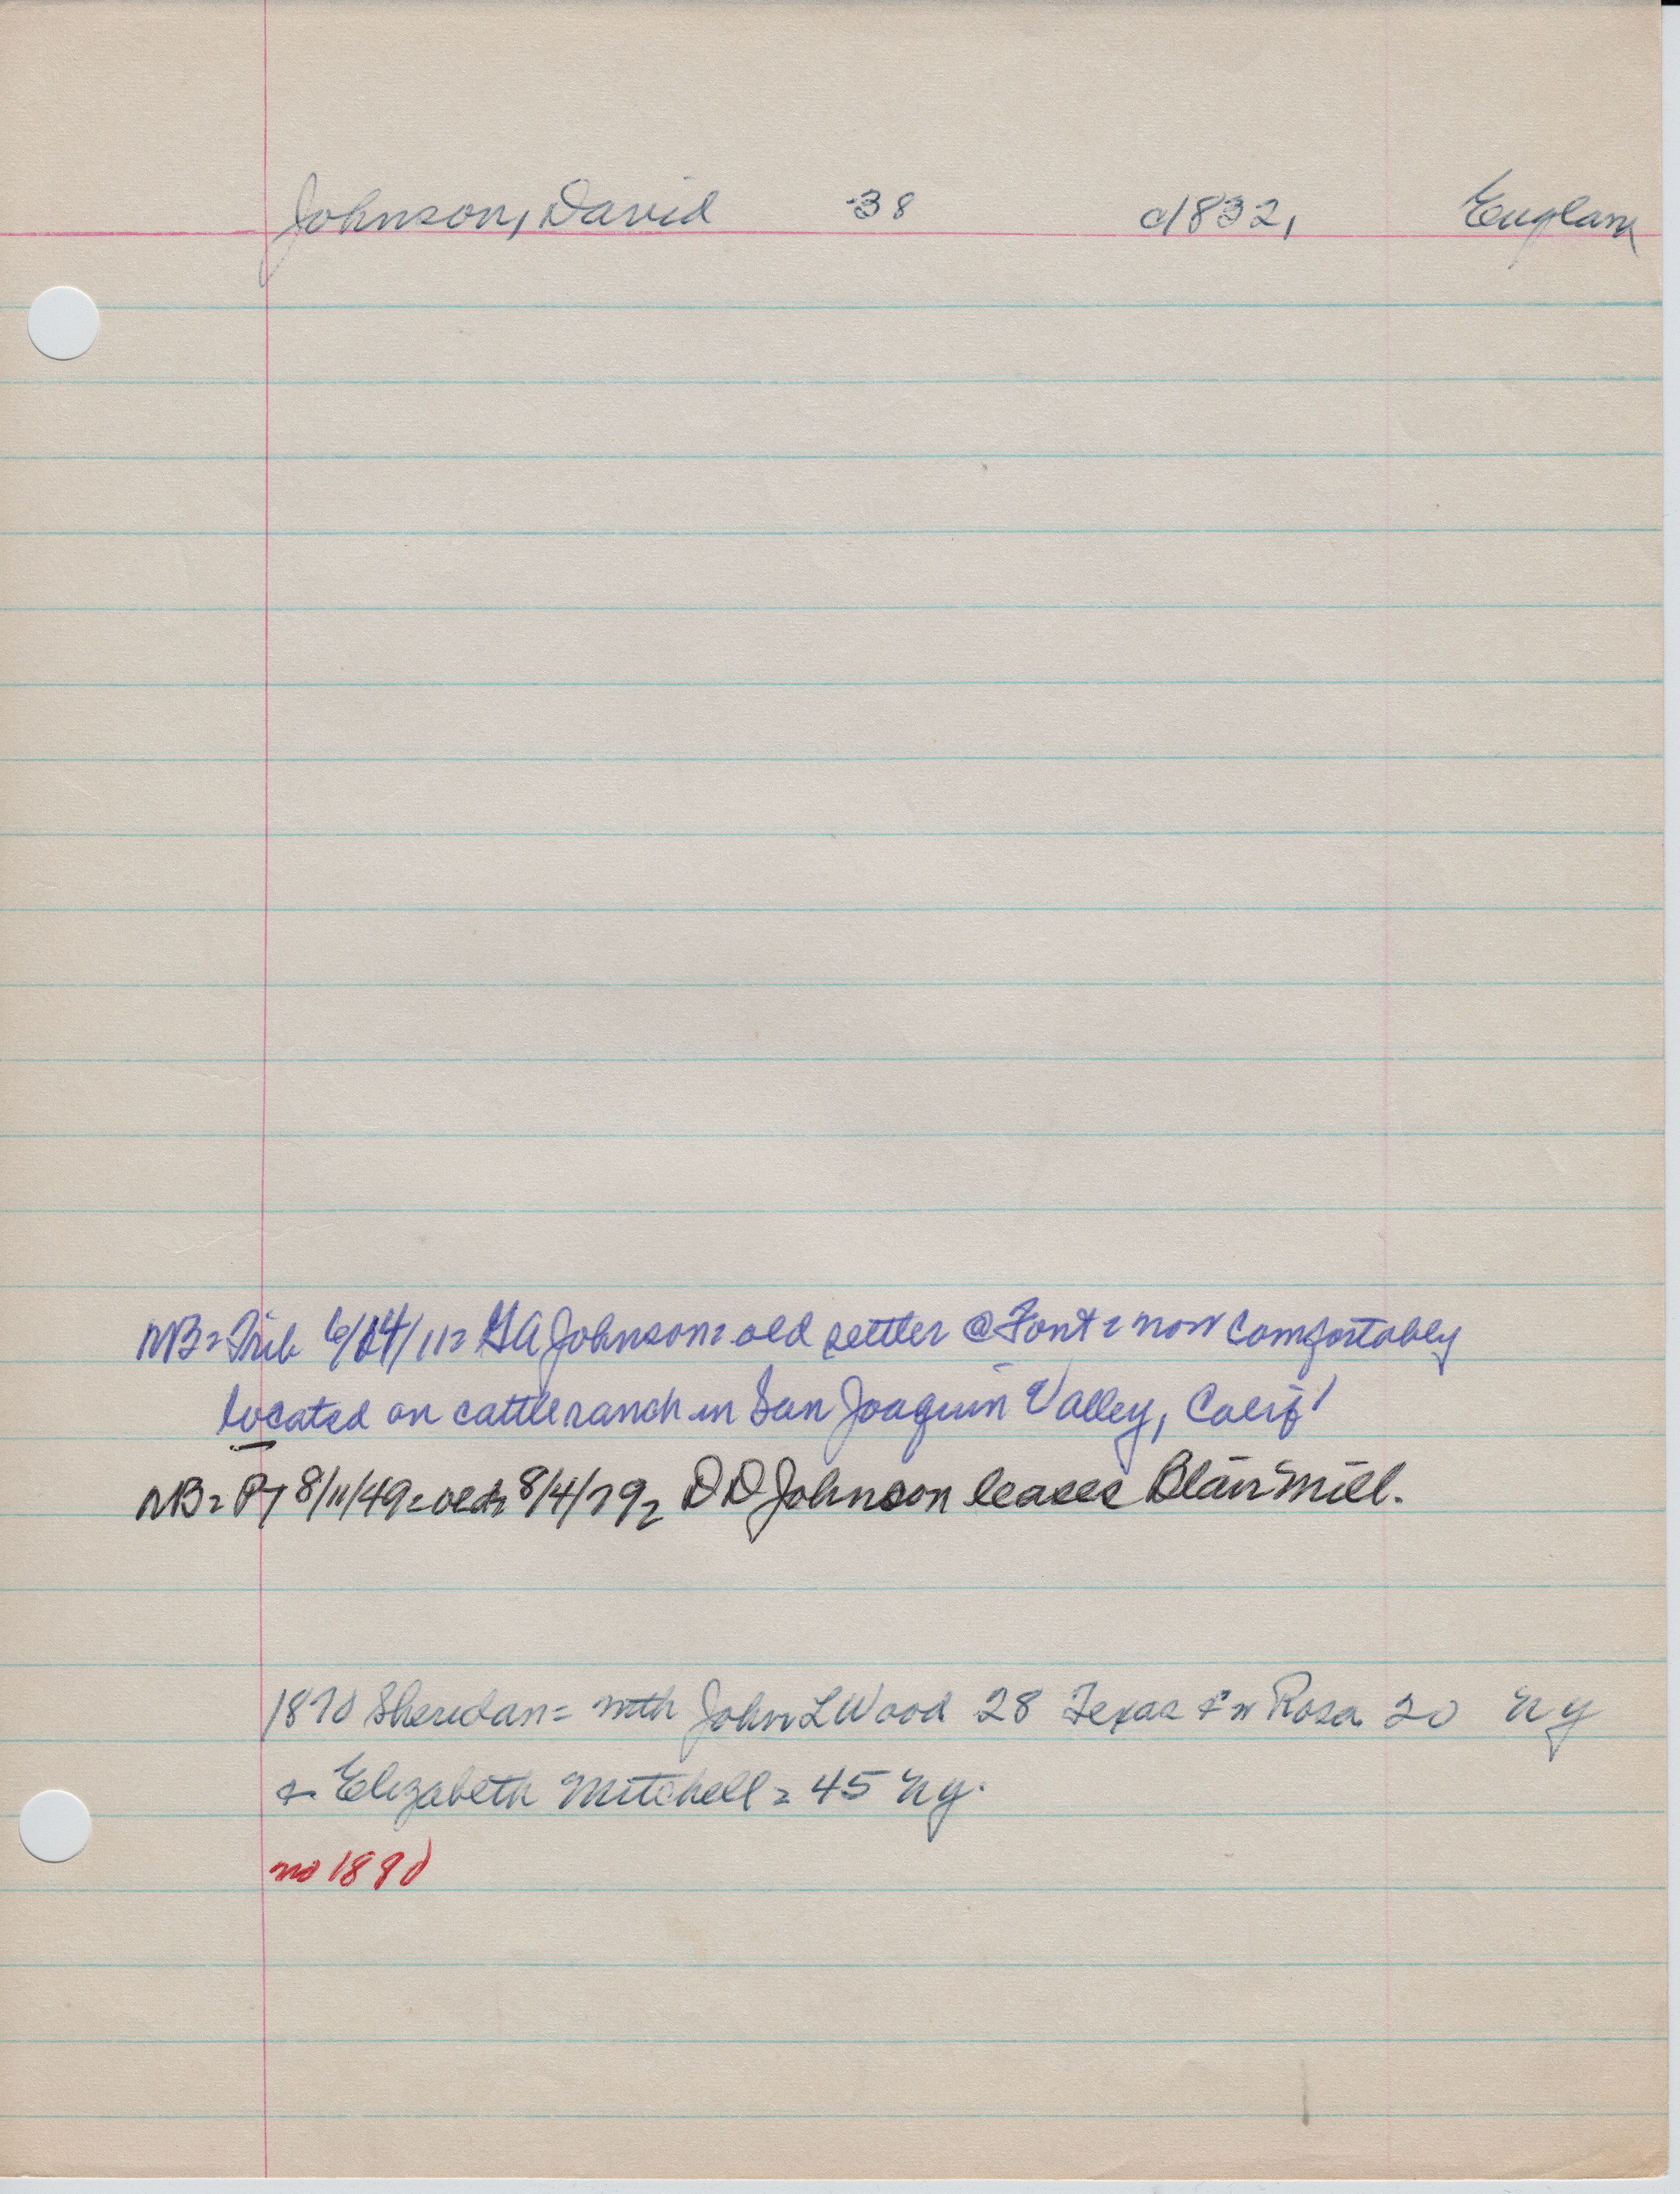 Johnson, David 38 c1832, England
NB= Trib 6/14/11= GA Johnson= old settler @ Font= now comfortably
located on cattle ranch in San Joaquin Valley, Calif'
NB= PT 8/11/49= 8/4/79= DD Johnson leases Blair mill.
1870 Sheridan= with John L Wood 28 Texas & w Rosa 20 NY
& Elizabeth Mitchell= 45 NY.
no 1880